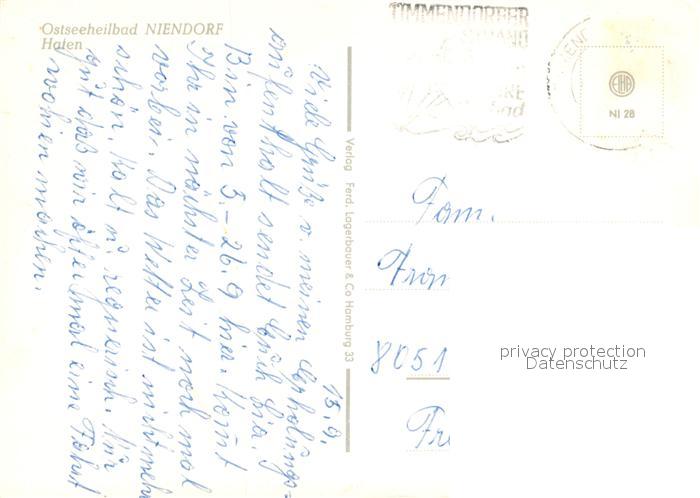 Ostseeheilbad NIENDORF
Hafen
TIMMENDORFER
STRAND
bad
EIHA
NI 28
Verlag Ferd. Lagerbauer & Co Hamburg 33
15.9.
Viele Grüße v. meinen Erholungs=
aufenthalt sendet Euch
Bin von 5.–26.9 hier. Kommt
Ihr in nächster Zeit noch mal
vorbei. Das Wetter ist nicht mehr
schön, kalt u. regnerisch. Nur
gut daß wir öfter mal eine Fahrt
machen.
Fam.
Fran
8051
Fre
privacy protection
Datenschutz